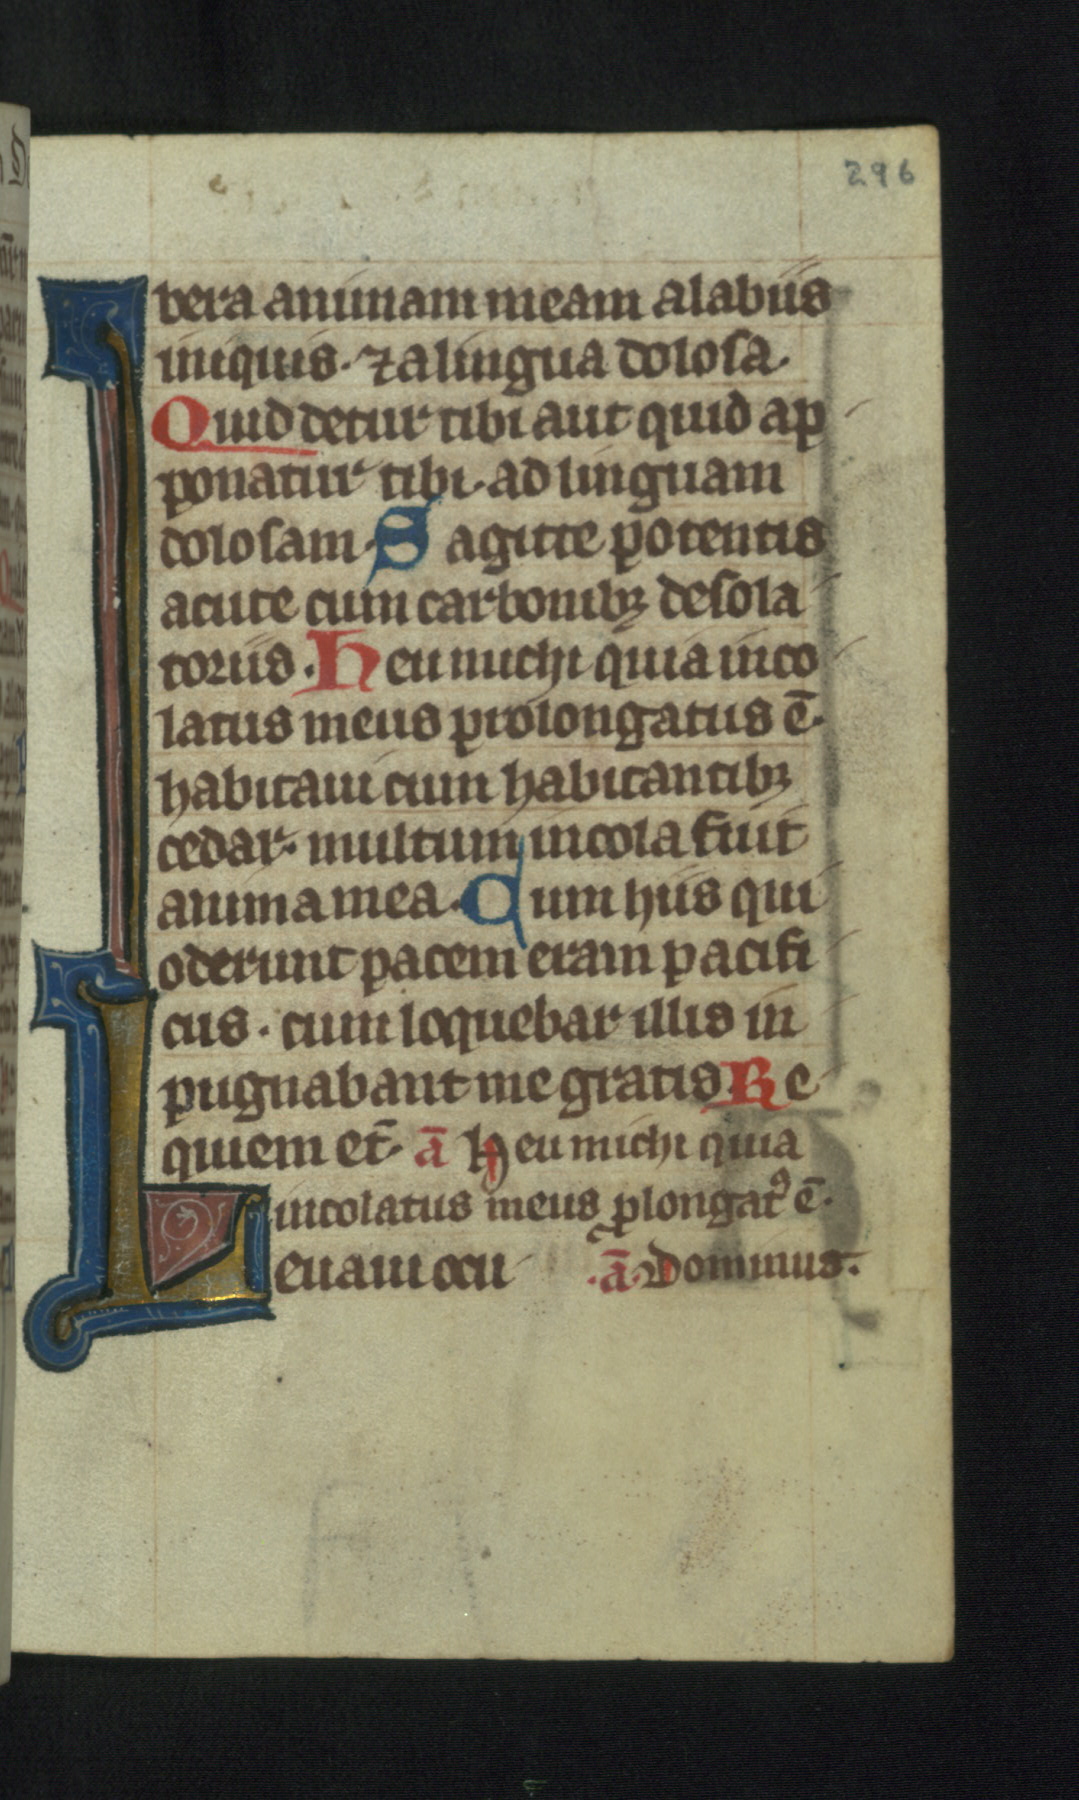 296
bera animam meam a labiis
iniquis. ⁊ a lingua dolosa.
Quid detur tibi aut quid ap
ponatur tibi. ad linguam
dolosam. Sagitte potentis
acute cum carbonibꝫ desola
toriis. Heu michi quia inco
latus meus prolongatus ē.
habitaui cum habitantibꝫ
cedar. multum incola fuit
anima mea. Cum hiis qui
oderunt pacem eram pacifi
cus. cum loquebar illis in
pugnabant me gratis. Re
quiem et̄. ā Heu michi quia
incolatus meus ꝓlongatꝰ ē.
Leuaui ocu .ā. Dominus.